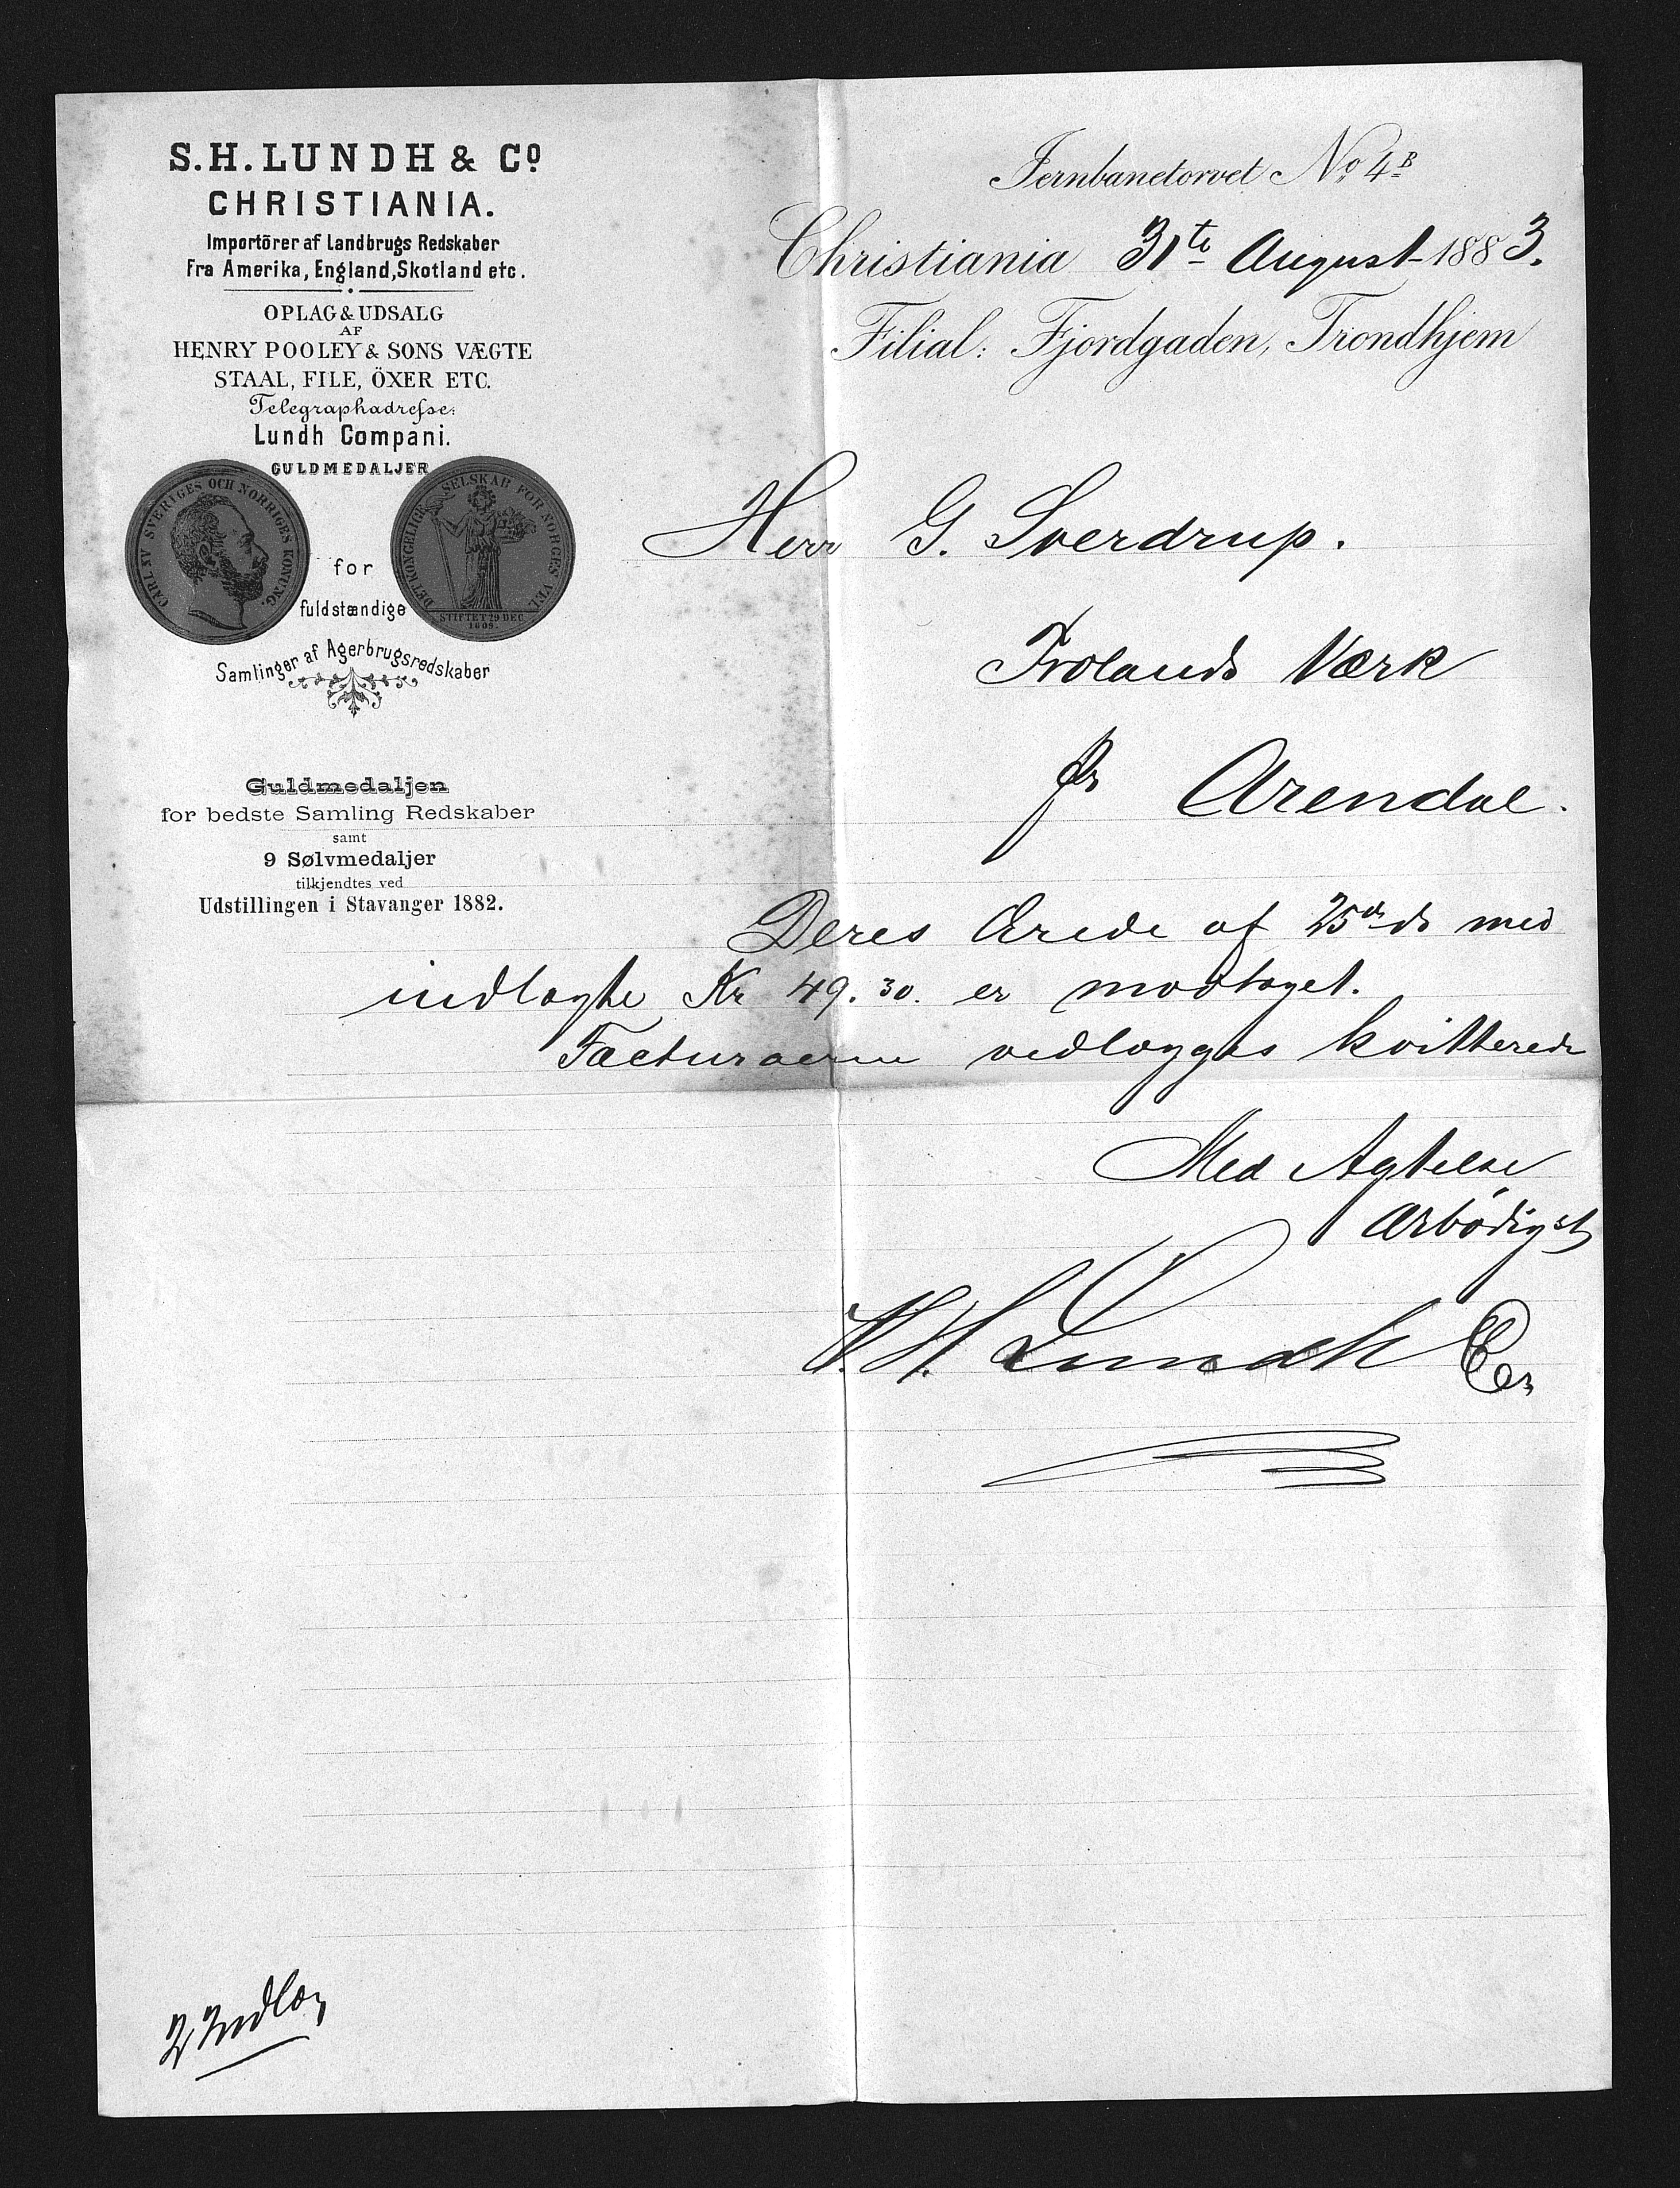 S.H. LUNDH & Cº
CHRISTIANIA.
Importörer af Landbrugs Redskaber
Fra Amerika, England, Skotland etc.
OPLAG & UDSALG
AF
HENRY POOLEY & SONS VÆGTE
STAAL, FILE, ÖXER ETC.
Telegraphadresse:
Lundh Compani.
GULDMEDALJER
CARL XV SVERIGES OCH NORRIGES KONUNG.
DET KONGELIGE SELSKAB FOR NORGES VEL
STIFTET 29 DEC.
1809.
for
fuldstændige
Samlinger af Agerbrugsredskaber
Guldmedaljen
for bedste Samling Redskaber
samt
9 Sølvmedaljer
tilkjendtes ved
Udstillingen i Stavanger 1882.
Jernbanetorvet Nº 4B
Christiania 31te August 1883.
Filial: Fjordgaden, Trondhjem
Herr G. Sverdrup.
Frolands Værk
pr Arendal.
Deres Ærede af 25de ds med
indlagte Kr 49.30. er modtaget.
Facturaerne vedlægges kvitterede
Med Agtelse
Ærbödigst
S.H. Lundh & Co
2 Indlæg